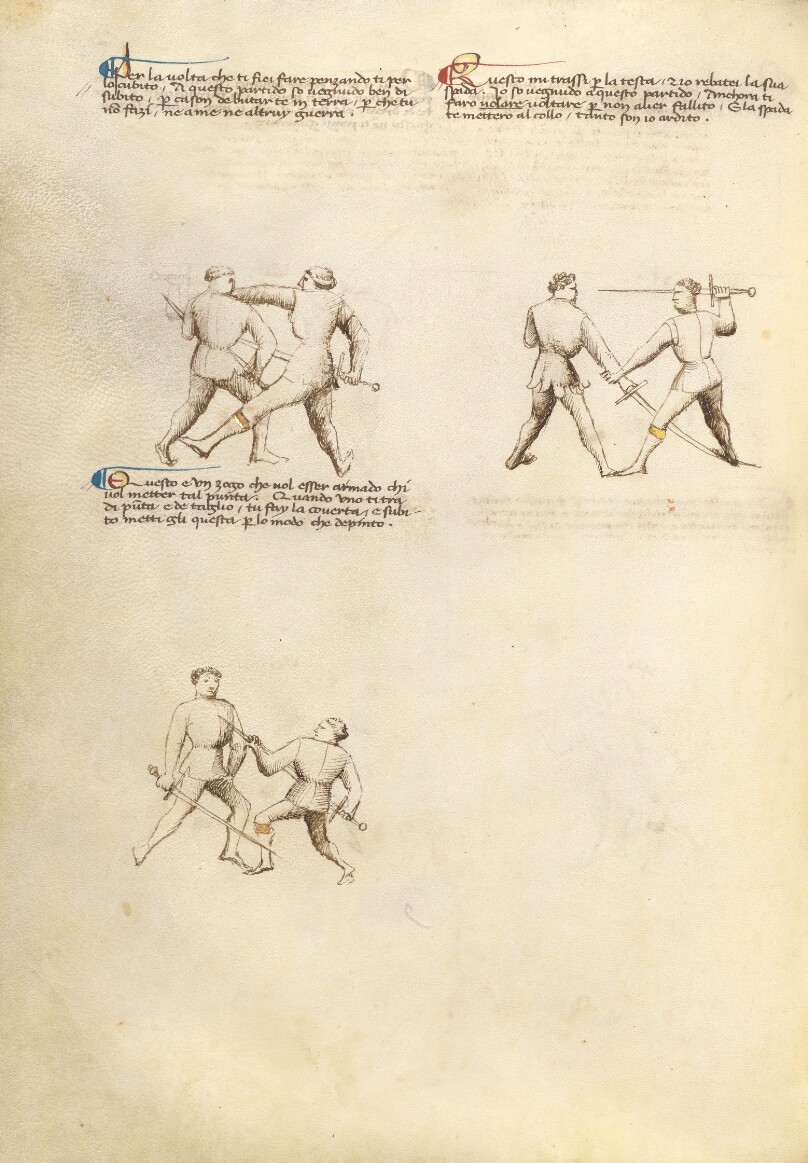 Per la volta che ti fici fare penzando ti per
lo cubito / A questo partido so uegnudo ben di
subito / p cason de butar te in terra / p che tu
no fazi / ne a me ne altruy guerra .
Questo mi trassi p la testa / & io rebatei la sua
spada . Io so uegnudo a questo partido / Anchora ti
faro uolare uoltare p non auer fallito / E la spada
te mettero al collo / tanto son io ardito .
Questo e un zogo che uol esser armado chi
uol metter tal punta . Quando uno ti tra
di puta e de taglio / tu fay la couerta / e subi-
to metti gli questa p lo modo che depinto .